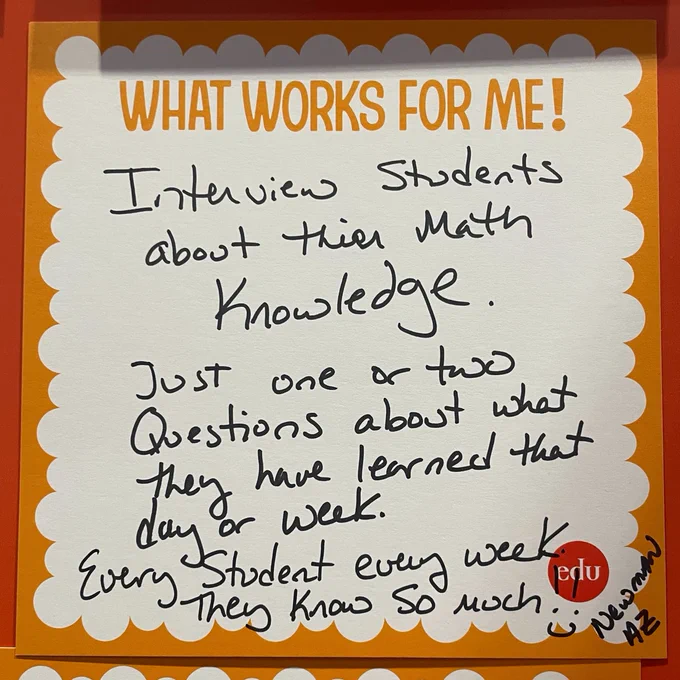 WHAT WORKS FOR ME!
Interview Students
about thier Math
Knowledge.
Just one or two
Questions about what
they have learned that
day or week.
Every Student every week.
They know so much!!
edu
Newman
AZ